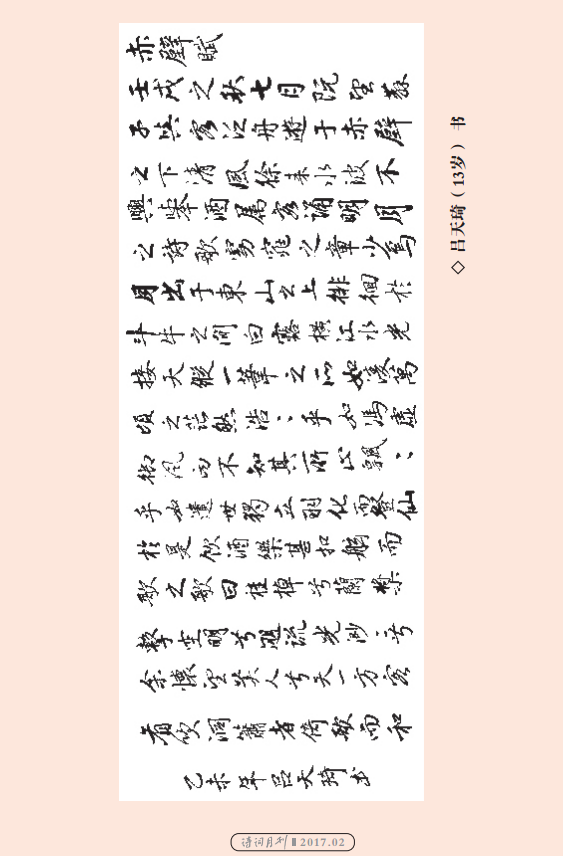 赤壁賦
壬戌之秋七月既望蘇
子與客泛舟遊于赤壁
之下清風徐来水波不
興舉酒属客誦明月
之詩歌窈窕之章少焉
月出于東山之上徘徊於
斗牛之间白露横江水光
接天縱一葦之所如凌萬
頃之茫然浩ミ乎如馮虛
御风而不知其所止飄ミ
乎如遺世獨立羽化而登仙
於是饮酒樂甚扣舷而
歌之歌曰桂棹兮蘭槳
擊空明兮遡流光渺ミ兮
余懷望美人兮天一方客
有吹洞簫者倚歌而和
己未年吕天琦书
◇ 吕天琦（13岁） 书
诗词月刊 2017.02